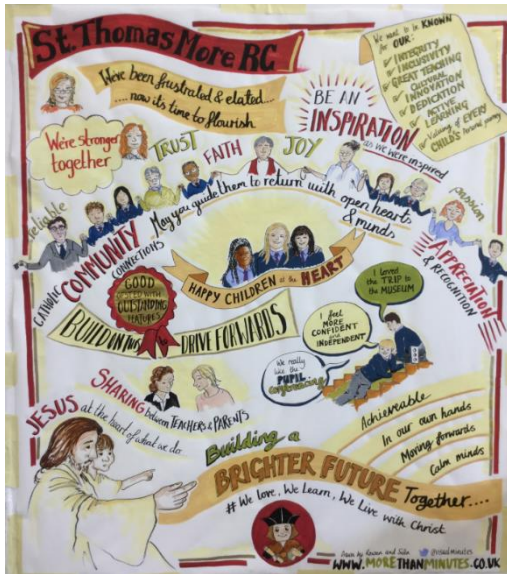 St. Thomas More RC
We've been frustrated & elated....
.... now its time to flourish
We want to be KNOWN
for OUR:
INTEGRITY
INCLUSIVITY
GREAT TEACHING
CULTURAL
INNOVATION
DEDICATION
ACTIVE
LEARNING
Valuing of EVERY
CHILD'S personal journey
BE AN
INSPIRATION
as we were inspired
We're stronger
together
TRUST
FAITH
JOY
reliable
passion
May you guide them to return with open hearts
& minds
CATHOLIC
COMMUNITY
CONNECTIONS
APPRECIATION
& RECOGNITION
HAPPY CHILDREN at the HEART
GOOD
WITH
OUTSTANDING
FEATURES
BUILD ON this to DRIVE FORWARDS
I loved
the TRIP to
the MUSEUM
I feel
MORE
CONFIDENT
INDEPENDENT
We really
like the
PUPIL
conferencing
SHARING between TEACHERS & PARENTS
JESUS at the heart of what we do
Achieveable
In our own hands
Moving forwards
Calm minds
Building a
BRIGHTER FUTURE Together....
# We Love, We Learn, We Live with Christ
WWW.MORETHANMINUTES.CO.UK